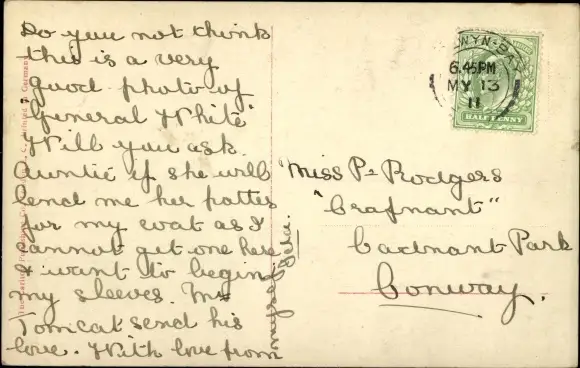 Do you not think
this is a very
good photo of
"General White"
Will you ask
Auntie if she will
lend me her patter
for my coat as I
cannot get one here
& want to begin
my sleeves. Mr
Tomcat send his
love. With love from
myself
COLWYN-BAY
6.45PM
MY 13
11
HALFPENNY
Miss P. Rodgers
"Crafnant"
Cadnant Park
Conway.